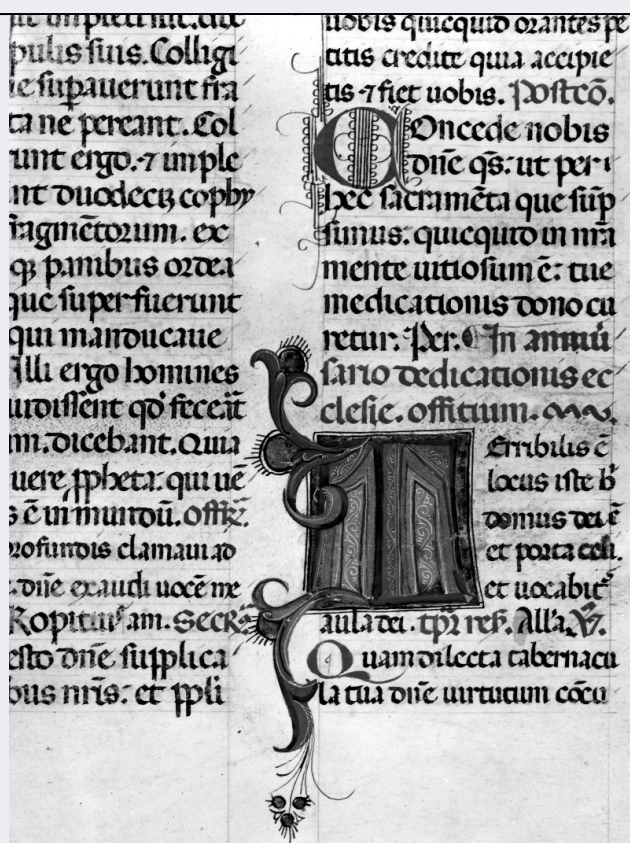 pulis suis. Colligi
te sup̄auerunt fra
ta ne pereant. Col
runt ergo. ⁊ imple
nt duodecȝ cophy
fragmētorum. ex
qȝ panibus ordea
que superfuerunt
qui manducaue
Illi ergo homines
uidissent qđ fecāt
m. dicebant. Quia
uere ꝓpheta: qui uē
s ē in mundū. offr̄.
rofundis clamaui ad
. dn̄e exaudi uocē me
Ropitius am. Secr̄.
esto dn̄e supplica
bus nr̄is: et ppl̄i
uobis quicquid orantes pe
titis credite quia accipie
tis ⁊ fiet uobis. Postcō.
COncede nobis
dn̄e qs̄: ut per
hec sacramēta que sūp
simus: quicquid in nr̄a
mente uitiosum ē: tue
medicationis dono cu
retur. Per. In anniū
sario dedicationis ec
clesie. offitium.
TErribilis ē
locus iste h̄
domus dei ē
et porta celi.
et uocabit̄
aula dei. tpr̄ res̄. Alľa. V̄.
Quam dilecta tabernacu
la tua dn̄e uirtutum cōcu